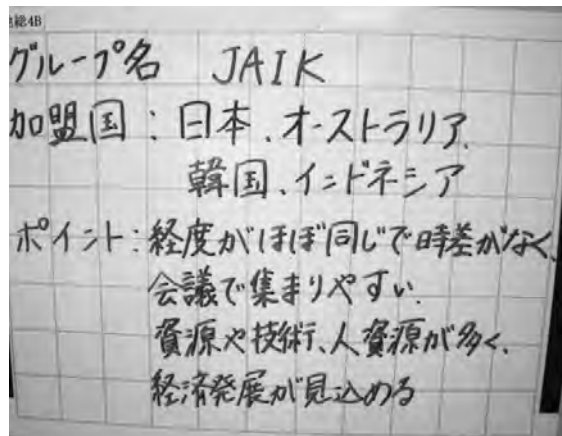 総4B
グループ名 JAIK
加盟国：日本、オーストラリア、
韓国、インドネシア
ポイント：経度がほぼ同じで時差がなく、
会議で集まりやすい.
資源や技術、人資源が多く、
経済発展が見込める